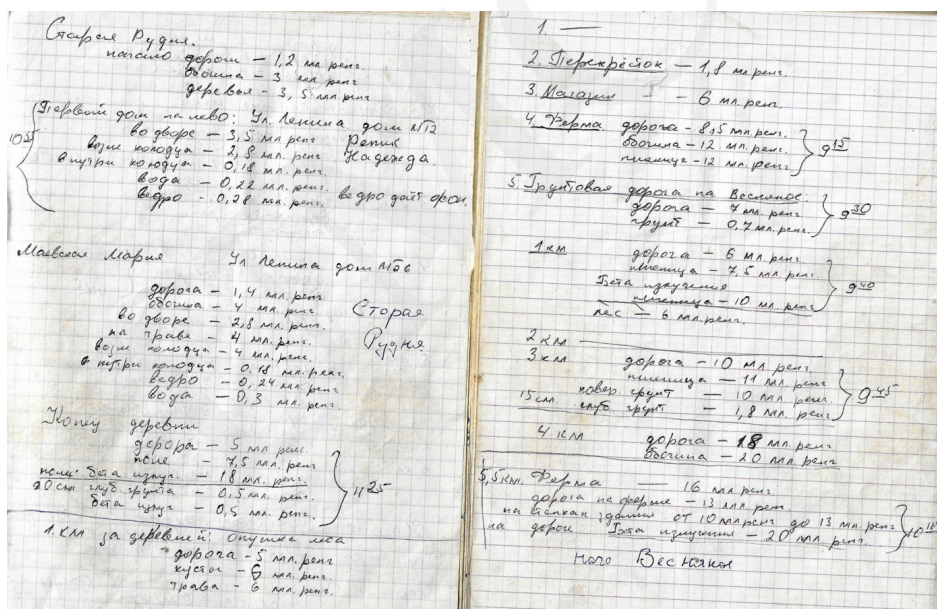 Старая Рудня.
начало дороги – 1,2 мл. ренг.
обочина – 3 мл. ренг
деревья – 3,5 мл. ренг
Первый дом налево: Ул. Ленина дом №12
во дворе – 3,5 мл. ренг Репик
возле колодца – 2,8 мл. ренг Надежда.
внутри колодца – 0,18 мл. ренг.
вода – 0,22 мл. ренг.
ведро – 0,28 мл. ренг. ведро даёт фон.
10 55
Маевская Мария Ул Ленина дом №56
дорога – 1,4 мл. ренг
обочина – 4 мл. ренг Старая
во дворе – 2,8 мл. ренг. Рудня
на траве – 4 мл. ренг.
возле колодца – 4 мл. ренг.
внутри колодца – 0,18 мл. ренг.
ведро – 0,24 мл. ренг
вода – 0,3 мл. ренг
Конец деревни
дорора – 5 мл. ренг.
поле – 7,5 мл. ренг
поле бета излуч. – 18 мл. ренг.
20 см глуб грунта – 0,5 мл. ренг.
бета излуч – 0,5 мл. ренг.
11 25
1 км за деревней: опушка леса
дорога – 5 мл. ренг.
кусты – 6 мл. ренг.
трава – 6 мл. ренг.
1. —
2. Перекрёсток – 1,8 мл. ренг.
3. Магазин – 6 мл. ренг.
4. Ферма дорога – 8,5 мл. ренг.
обочина – 12 мл. ренг.
пшеница – 12 мл. ренг.
9 15
5. Грунтовая дорога на Весняное:
дорога – 7 мл. ренг
грунт – 0,7 мл. ренг.
9 30
1 км дорога – 6 мл. ренг
пшеница – 7,5 мл. ренг.
Бета излучение
пшеница – 10 мл. ренг
лес – 6 мл. ренг.
9 40
2 км
3 км дорога – 10 мл. ренг.
пшеница – 11 мл. ренг
повер. грунт – 10 мл. ренг.
15 см. глуб грунт – 1,8 мл. ренг
9 45
4 км дорога – 18 мл. ренг
обочина – 20 мл. ренг
5,5 км. Ферма – 16 мл. ренг
дорога на ферме – 13 мл. ренг.
на стенках здания от 10 мл ренг до 13 мл. ренг
на дороге Бета излучение – 20 мл. ренг.
Весняны